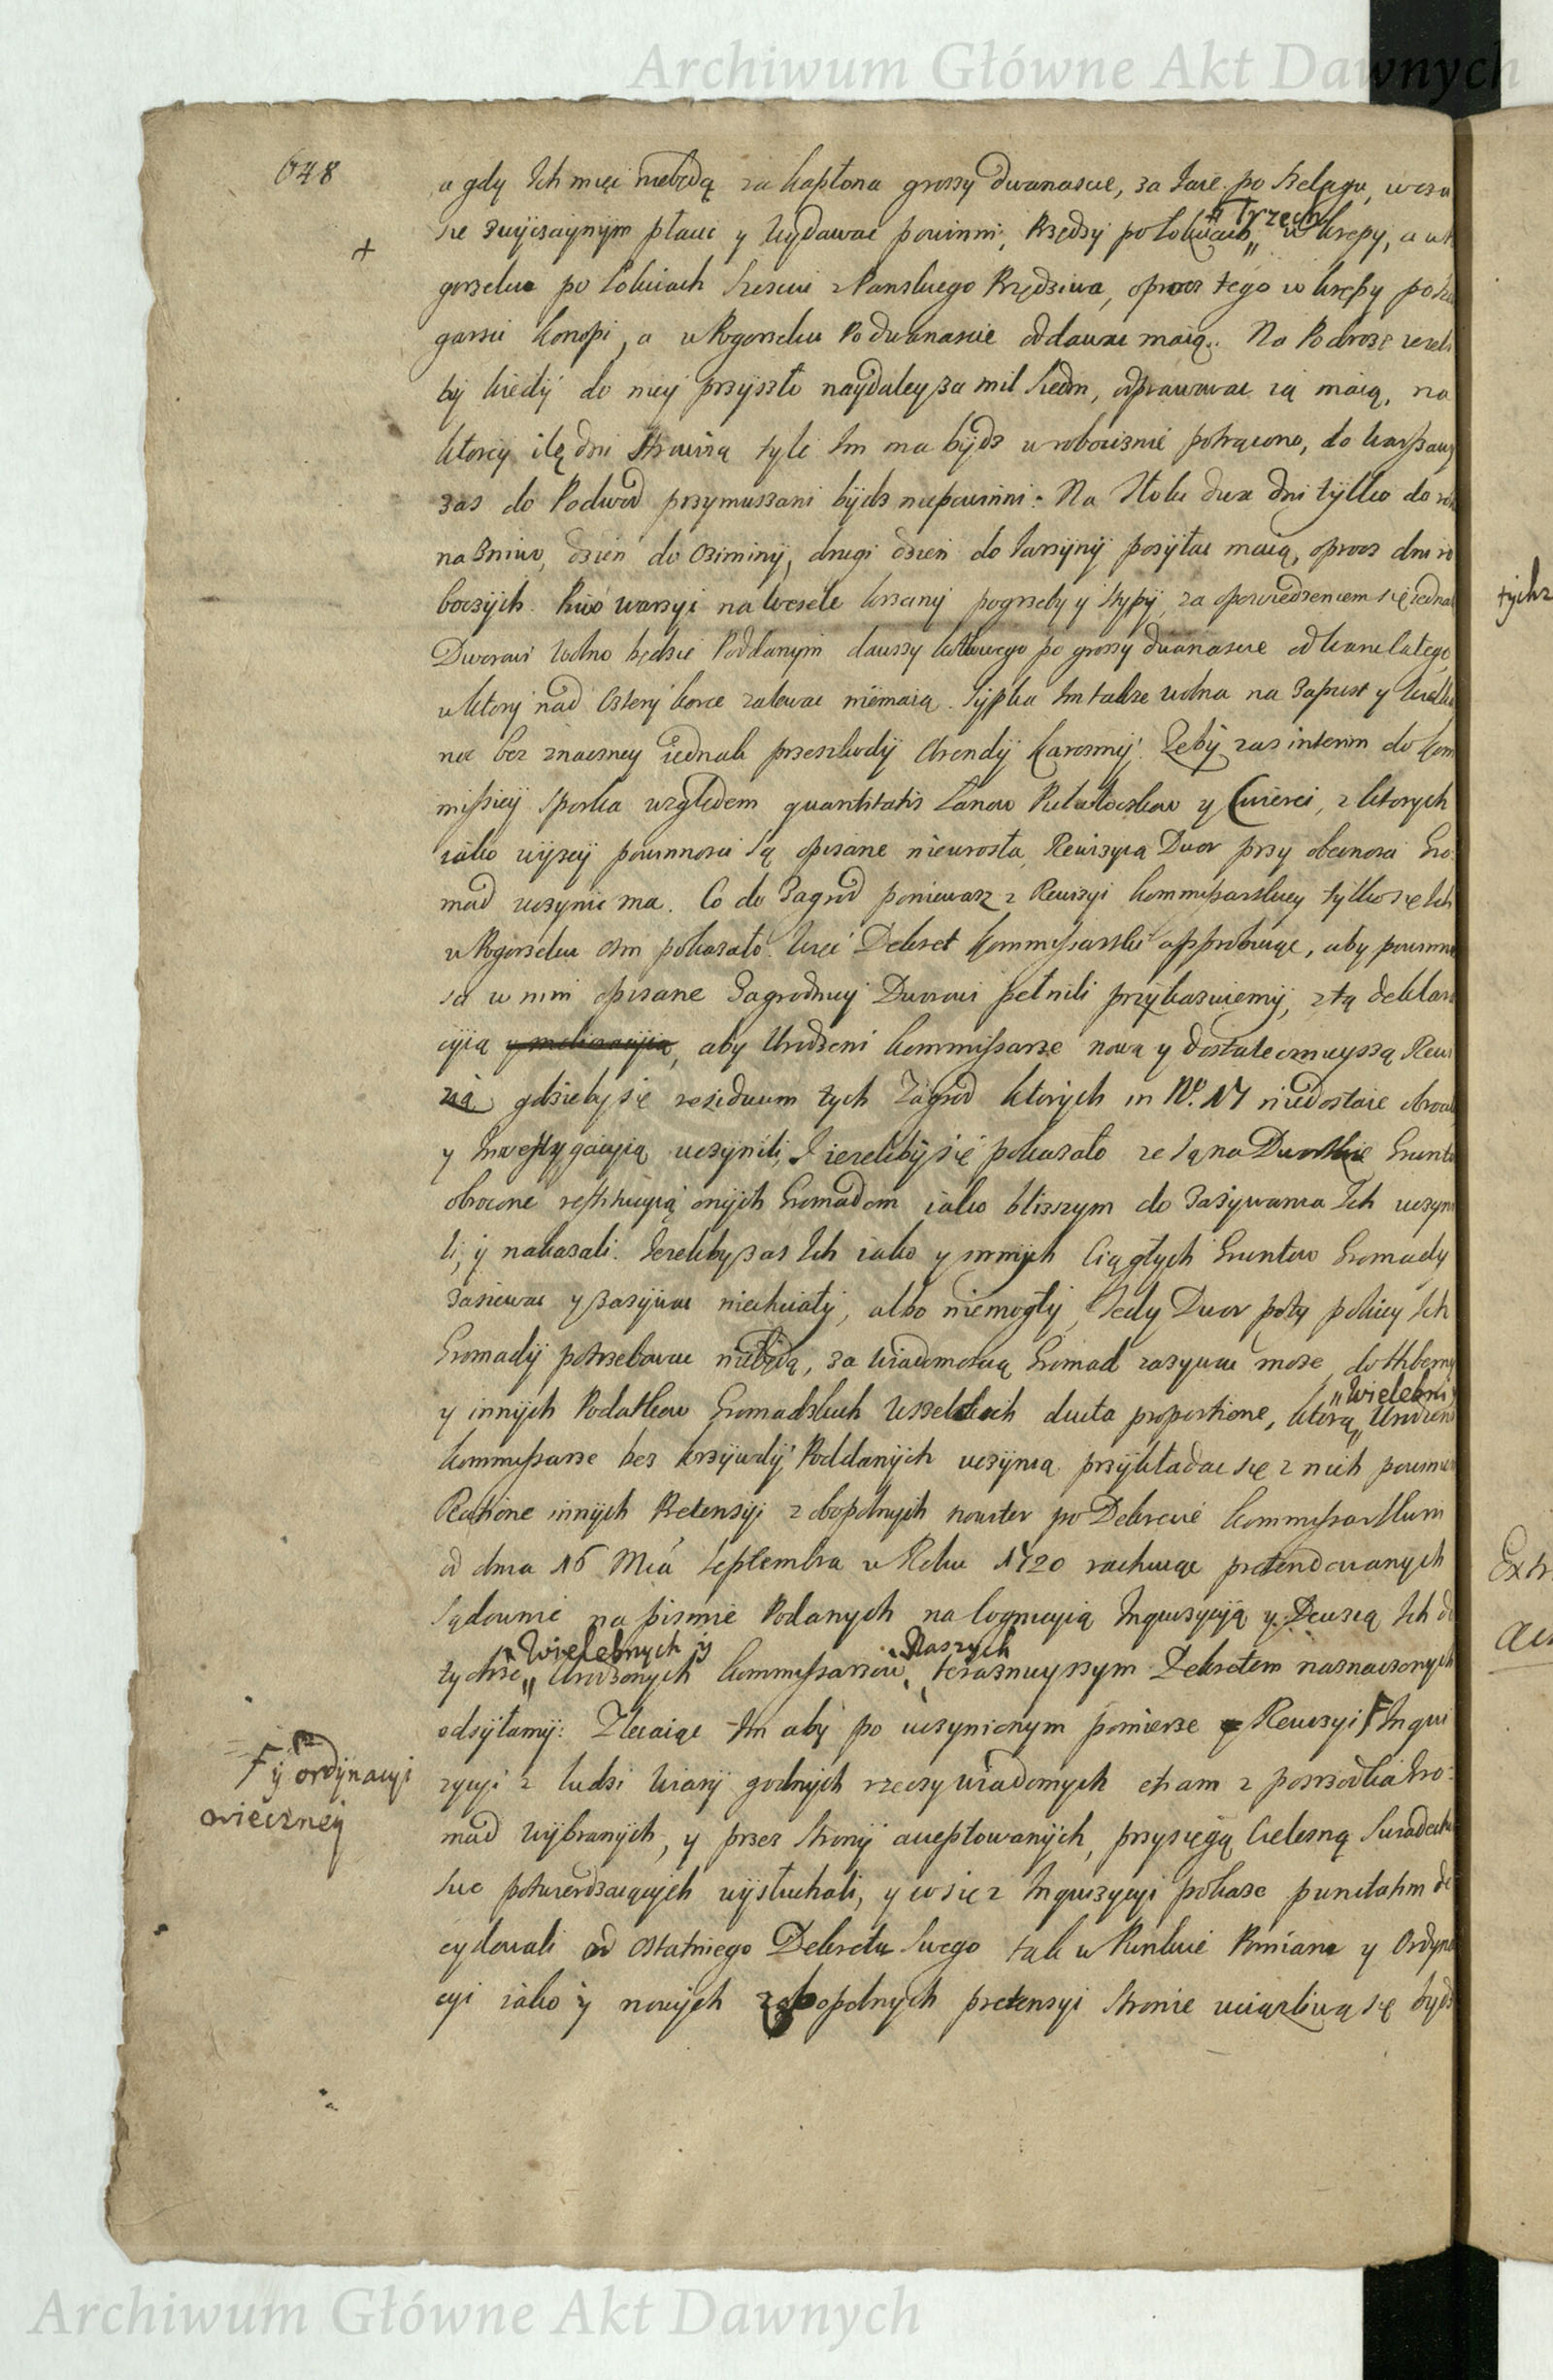 Archiwum Główne Akt Dawnych
648
a gdy Ich mieć niebędą za kapłona groszy dwanascie, za Jaie po szelągu, wcza
sie zwyczaynym płacic y wydawac powinni, Przędzy po Łokciach „ w krepy, a w
„ Trzech
+
gorzelcu po Łokciach szesciu z Panskiego Przędziwa, oprocz tego w krepy po
garsci konopi, a w Rogorzelcu Po dwanascie oddawac maią. Na Podroże iezeli
by kiedy do niey przyszło naydaley za mil siedm, odprawowac ią maią, na
ktorey ilę dni strawią tyle Im ma bydz w robociznie potrącono, do Warszawy
zas do Podwod przymuszani bydz niepowinni. Na Stołu dwa dni tylko do
na Zniwo, dzien do Oziminy, drugi dzien do Jarzyny posyłac maią, oprocz dni ro
boczych. Piwo warzyi na Wesele krzciny pogrzeby y stypy, za opowiedzeniem się iednak
Dworowi wolno będzie Poddanym dawszy kotłowego po groszy dwanascie od każdego
w ktory nad cztery korce zalewac niemaią. Sypka Im także wolna na Zapust y Wielką
noc bez znaczney iednak przeszkody Arendy Karczmy. Zeby zas interim do kom
missiey sporka względem quantitatis Łanow Pułwłoczkow y Cwierci, z ktorych
iako wyżey powinnosci są opisane nieurosła, Rewizyią Dwor przy obecnosci Gro
mad uczynic ma. Co do Zagrod poniewasz z Rewizyi kommissarskiey tylko się Ich
w Rogorzelcu osm pokazało. więc Dekret kommissarski approbuiąc, aby powinno
sci w nim opisane Zagrodnicy Dworowi pełnili przykazuiemy, z tą deklara
cyią y moderacyią, aby Urodzeni kommissarze nową y dostatecznieyszą Rewi
zią gdzieby się residuum tych Zagrod ktorych in No. 17 niedostaie obrocił
y Inwestygacyią uczynili, I iezeliby się pokazało ze są na Dworskie Grunta
obrocone restitucyią onych Gromadom iako bliszszym do Zażywania Ich uczyni
li, y nakazali. Iezeliby zas Ich iako y innych Ciągłych Gruntow Gromady
zasiewac y zażywac niechciały, albo niemogły, Tedy Dwor poty pokiey Ich
Gromady potrzebowac niebędą, za wiadomoscią Gromad zażywac może, do Hyberny
y innych Podatkow Gromadzkich Wszelakich ducta proportione, ktorą „ Urodzeni
„ Wielebni y
kommissarze bez krzywdy Poddanych uczynią przykładac się z nich powinien
Ratione innych Pretensyi z obopolnych noviter po Dekrecie kommissarskim
od dnia 16 Mca Septembra w Roku 1720 rachuiąc pretendowanych
Sądownie na pismie Podanych na Cognicyią Inquizycyią y Decizią Ich do
tychże „ Urodzonych kommissarzow „ terazniejszym Dekretem naznaczonych
„ Wielebnych y
„ Naszych
odsyłamy: Zlecaiąc Im aby po uczynionym pomierze y Rewizyi F Inqui
F y ordynacyi
owieczney
zycyi z ludzi wiary godnych rzeczy wiadomych etiam z posrzodka Gro
mad wybranych, y przez strony acceptowanych, przysięgą Cielesną swiadectwo
swe potwierdzaiących wysłuchali, y co się z Inquizycyi pokaże punctatim de
cydowali od ostatniego Dekretu swego tak w Punkcie Pomiaru y Ordyna
cyi iako y nowych z obopolnych pretensyi stronie uciążliwą się bydz
tychz
Extr
Archiwum Główne Akt Dawnych